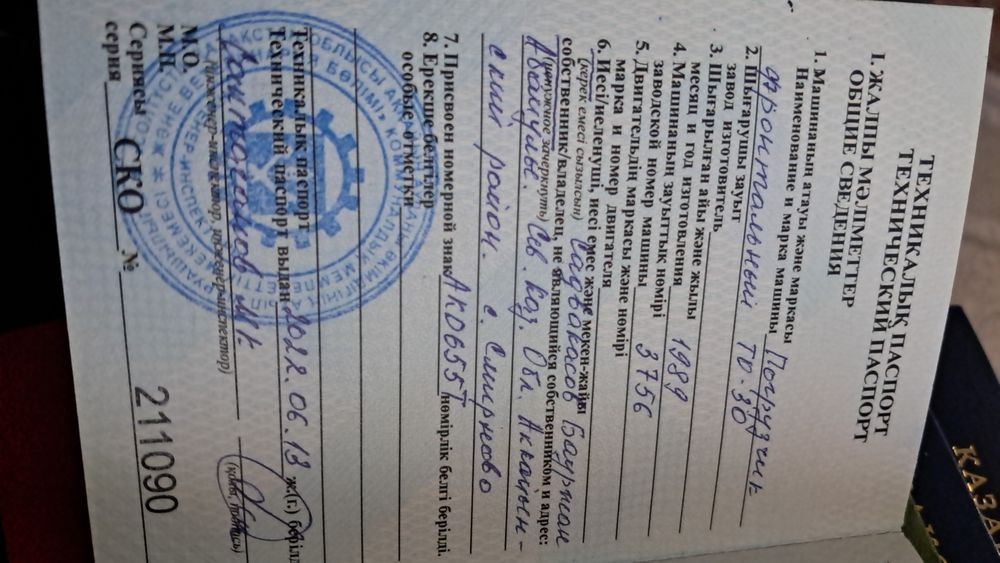 ТЕХНИКАЛЫҚ ПАСПОРТ
ТЕХНИЧЕСКИЙ ПАСПОРТ
I. ЖАЛПЫ МӘЛІМЕТТЕР
ОБЩИЕ СВЕДЕНИЯ
1. Машинаның атауы және маркасы
Наименование и марка машины Погрузчик
фронтальный ТО-30
2. Шығарушы зауыт
завод изготовитель
3. Шығарылған айы және жылы
месяц и год изготовления 1989
4. Машинаның зауыттық нөмірі
заводской номер машины 3756
5. Двигательдің маркасы және нөмірі
марка и номер двигателя
6. Иесі/иеленуші, иесі емес және мекен-жайы
(керек емесі сызылсын) Садвакасов Бауржан
собственник/владелец, не являющийся собственником и адрес:
(ненужное зачеркнуть) Сев. Каз. Обл. Аккайын-
ский район. с. Смирново
7. Присвоен номерной знак АК0655Т нөмірлік белгі берілді.
8. Ерекше белгілер
особые отметки
Техникалық паспорт
Технический паспорт выдан 2022.06.13 ж.(г.)
М.О.
М.П.
(инженер-инспектор, инженер-инспектор)
(қолы, подпись)
Сериясы
серия СКО № 211090
КАЗА